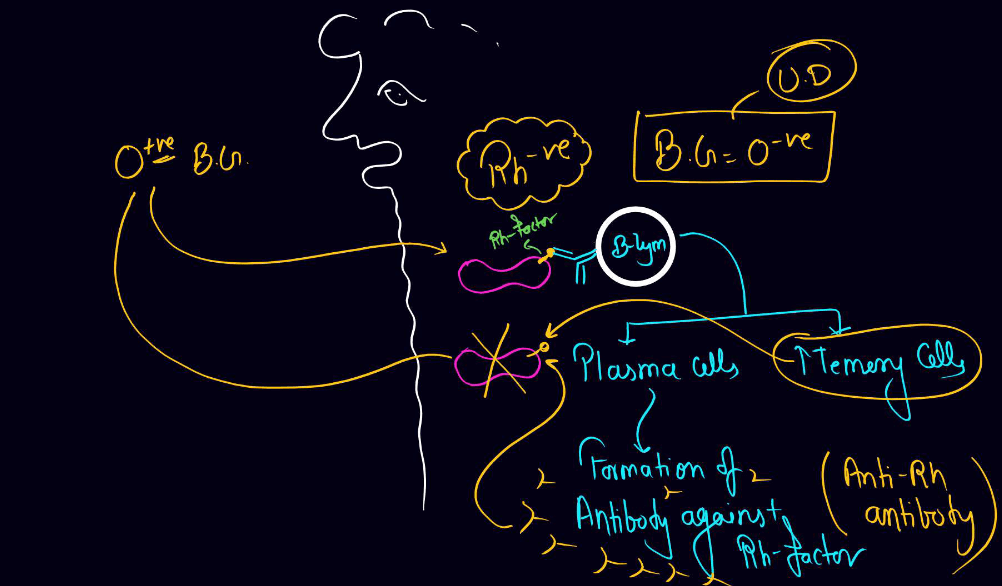 U.D
B.G = O-ve
O+ve B.G.
Rh-ve
Rh-factor
B-lym
Plasma cells
Memory Cells
Formation of
Antibody against
Rh-factor
(Anti-Rh
antibody)